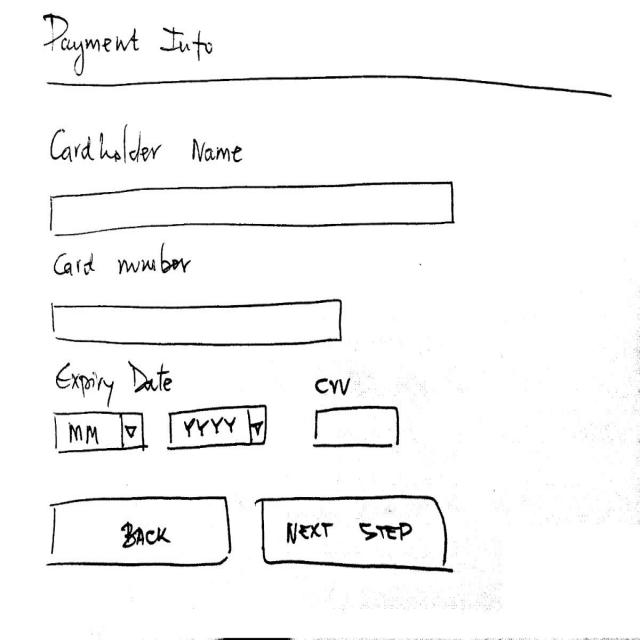 Payment Info
Cardholder Name
Card number
Expiry Date CVV
MM YYYY
BACK NEXT STEP